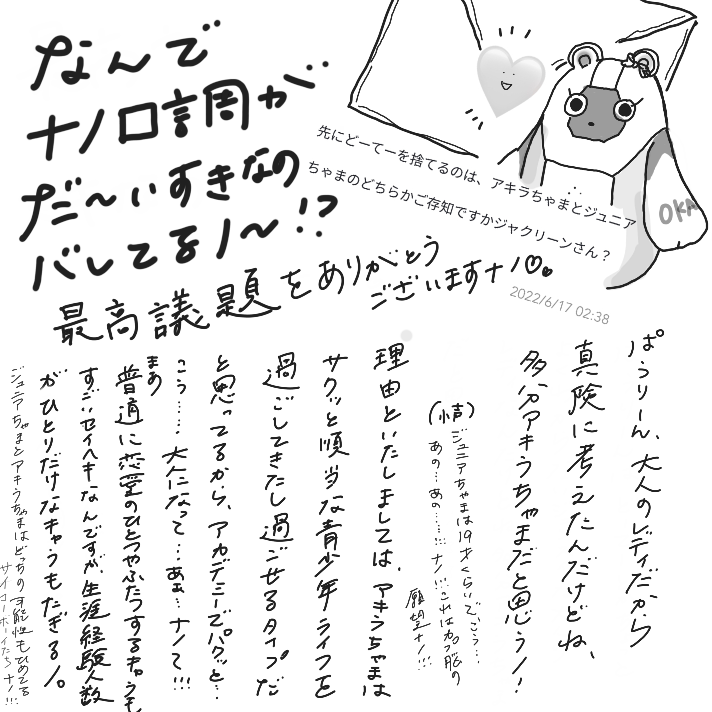 なんで
ナノ口調が
だ〜いすきなの
バレてるノ〜!?
先にどーてーを捨てるのは、アキラちゃまとジュニア
ちゃまのどちらかご存知ですかジャクリーンさん？
OKA
最高議題をありがとう
ございますナノ♡。
2022/6/17 02:38
ぱうりーん、大人のレディだから
真険に考えたんだけどね、
多分アキラちゃまだと思うノ!
ジュニアちゃまは19才くらいでこう…
あの…あの……!!ナノ!!これはカプ脳の
願望ナノ!!!
理由といたしましては、アキラちゃまは
サクッと順当な青少年ライフを
過ごしてきたし過ごせるタイプだ
と思ってるから、アカデミーでパクッと…
こう……大人になって…あぁ…ナノて!!!
まあ
普通に恋愛のひとつやふたつするキャラも
すごいセイヘキなんですが、生涯経験人数
がひとりだけなキャラもたぎるノ。
ジュニアちゃまとアキラちゃまはどっちの可能性もひめてる
サイコーボーイたちナノ!!!